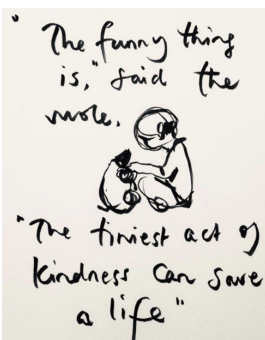 "The funny thing
is," said the
mole.
"The tiniest act of
kindness can save
a life"